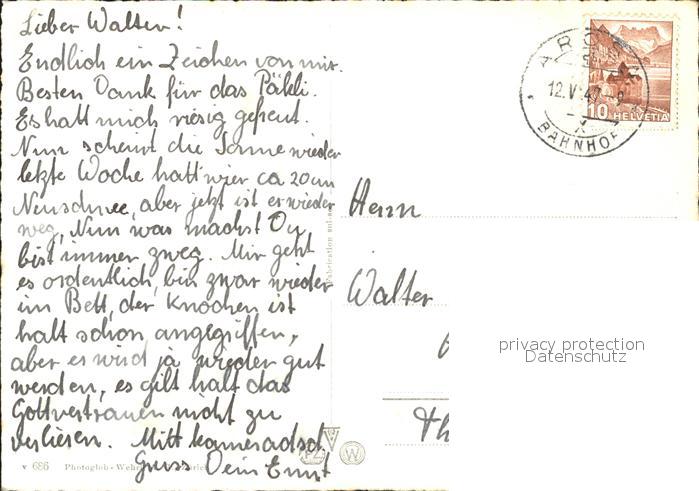 Lieber Walter!
Endlich ein Zeichen von mir.
Besten Dank für das Päkli.
Es hatt mich riesig gefreut.
Nun scheint die Sonne wieder
letzte Woche hatt wier ca 20cm
Neuschnee, aber jetzt ist er wieder
weg, Nun was machst Du
bist immer zweg. Mir geht
es ordentlich, bin zwar wieder
im Bett, der Knochen ist
halt schon angegriffen,
aber es wird ja wieder gut
werden, es gilt halt das
Gottvertrauen nicht zu
verliesen. Mitt kameradsch
Gruss Dein Ernst
v 686 Photoglob-Wehr
Fabrication
AROSA
12.V.47
-X-
BAHNHOF
10 HELVETIA
Herrn
Walter
Th
privacy protection
Datenschutz
PZ
W